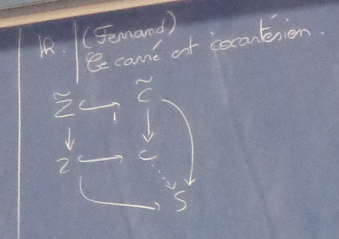 Th. (Ferrand)
Ce carré est cocartésien.
Z̃ C̃
Z C
S